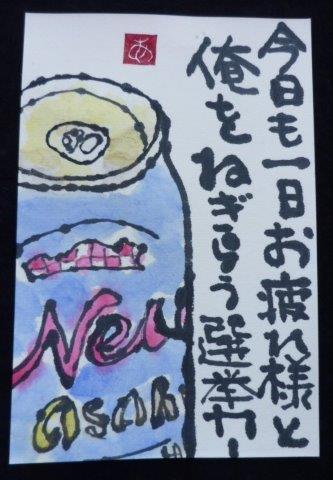 今日も一日お疲れ様と
俺をねぎらう選挙カー
あ
New
asahi